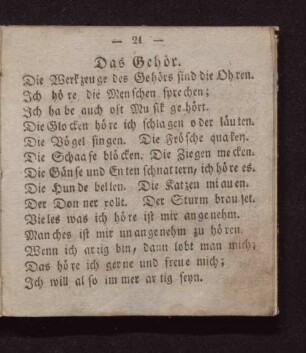 — 21 —
Das Gehör.
Die Werkzeuge des Gehörs sind die Ohren.
Ich höre die Menschen sprechen;
Ich habe auch oft Musik gehört.
Die Glocken höre ich schlagen oder läuten.
Die Vögel singen. Die Frösche quaken.
Die Schaafe blöcken. Die Ziegen mecken.
Die Gänse und Enten schnattern, ich höre es.
Die Hunde bellen. Die Katzen miauen.
Der Donner rollt. Der Sturm brauset.
Vieles was ich höre ist mir angenehm.
Manches ist mir unangenehm zu hören.
Wenn ich artig bin, dann lobt man mich;
Das höre ich gerne und freue mich;
Ich will also immer artig seyn.